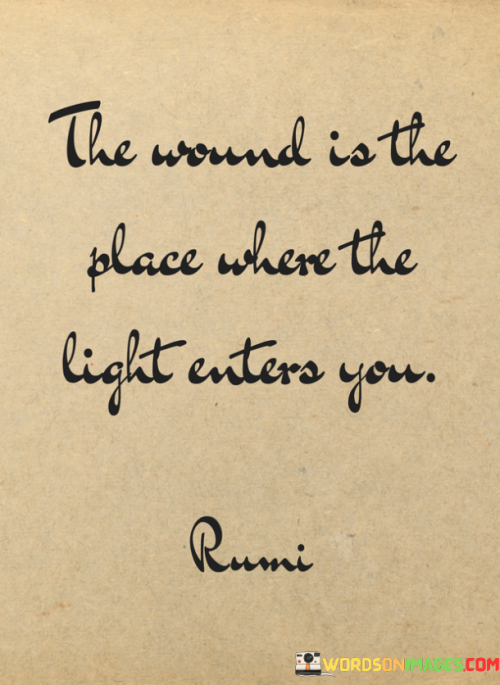 The wound is the
place where the
light enters you.
Rumi
WORDSONIMAGES.COM